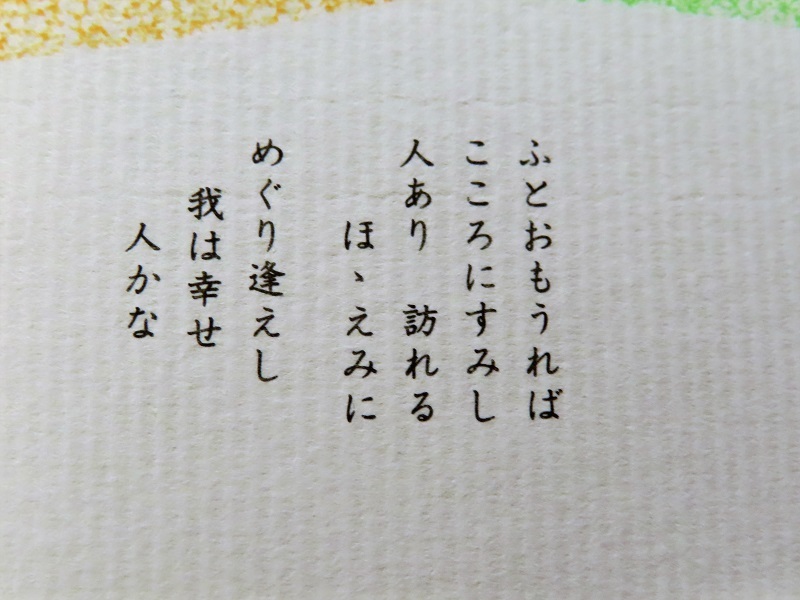 ふとおもうれば
こころにすみし
人あり　訪れる
ほゝえみに
めぐり逢えし
我は幸せ
人かな